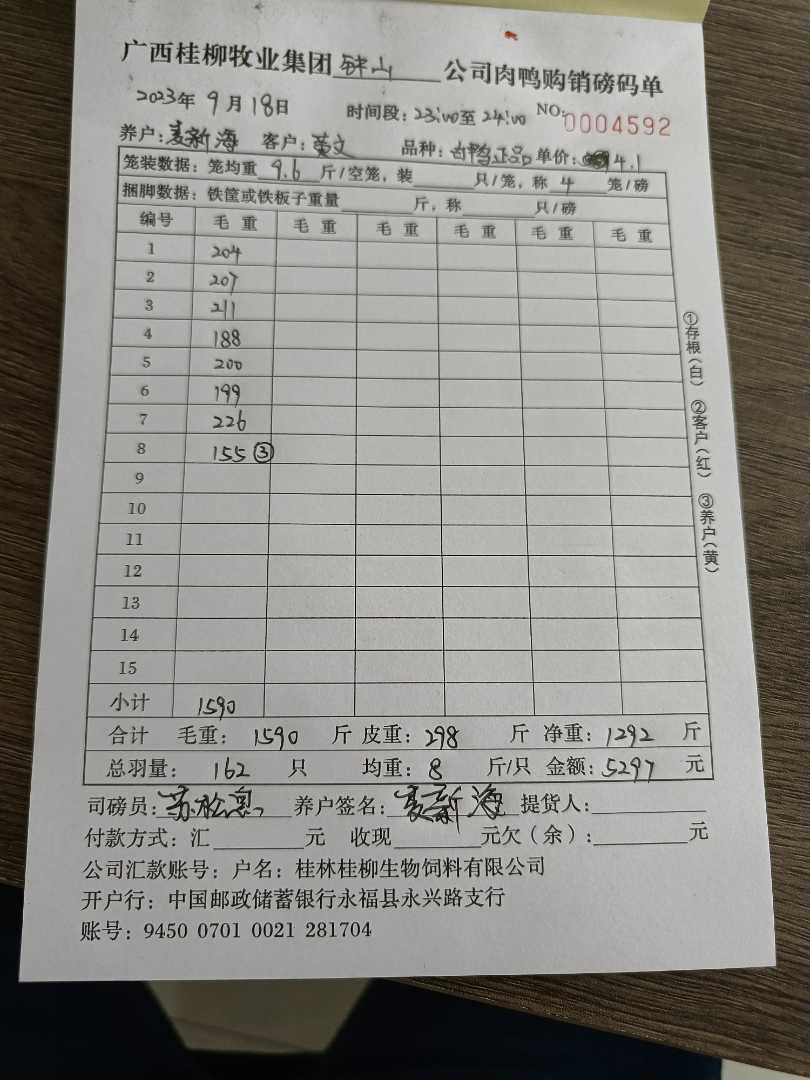 广西桂柳牧业集团 钟山 公司肉鸭购销磅码单
2023年 9月18日 时间段：23:00至 24:00 NO: 0004592
养户：麦新海 客户：英文 品种：白鸭正品 单价：4.1
笼装数据：笼均重 9.6 斤/空笼，装 只/笼，称 4 笼/磅
捆脚数据：铁筐或铁板子重量 斤，称 只/磅
编号 毛重 毛重 毛重 毛重 毛重 毛重
1 204
2 207
3 211
4 188
5 200
6 199
7 226
8 155 ③
9
10
11
12
13
14
15
小计 1590
合计 毛重：1590 斤 皮重：298 斤 净重：1292 斤
总羽量：162 只 均重：8 斤/只 金额：5297 元
司磅员： 养户签名：麦新海 提货人：
付款方式：汇 元 收现 元欠（余）： 元
公司汇款账号：户名：桂林桂柳生物饲料有限公司
开户行：中国邮政储蓄银行永福县永兴路支行
账号：9450 0701 0021 281704
①存根（白） ②客户（红） ③养户（黄）